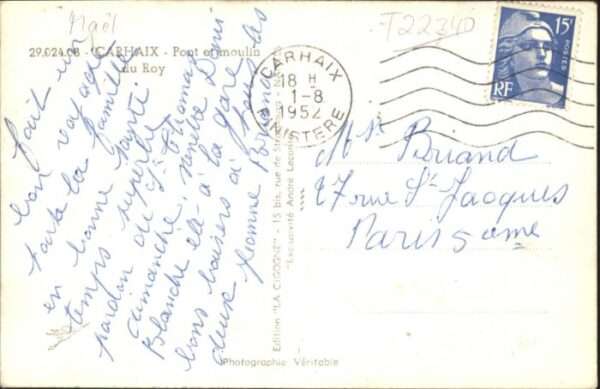 Naël
T2234D
29.024.08 - CARHAIX - Pont et moulin
du Roy
15F
POSTES
RF
CARHAIX
18 H
1-8
1952
FINISTERE
fait un
bon voyage
toute la famille
en bonne santé
temps superbe
pardon de St Thomas
dimanche, Denise
Blanche là à la gare
bons baisers à tous les
deux Yvonne
Mr Briand
27 rue St Jacques
Paris 5eme
Edition "LA CIGOGNE" - 15 bis, rue de
"Exclusivité André Leconte"
Photographie Véritable